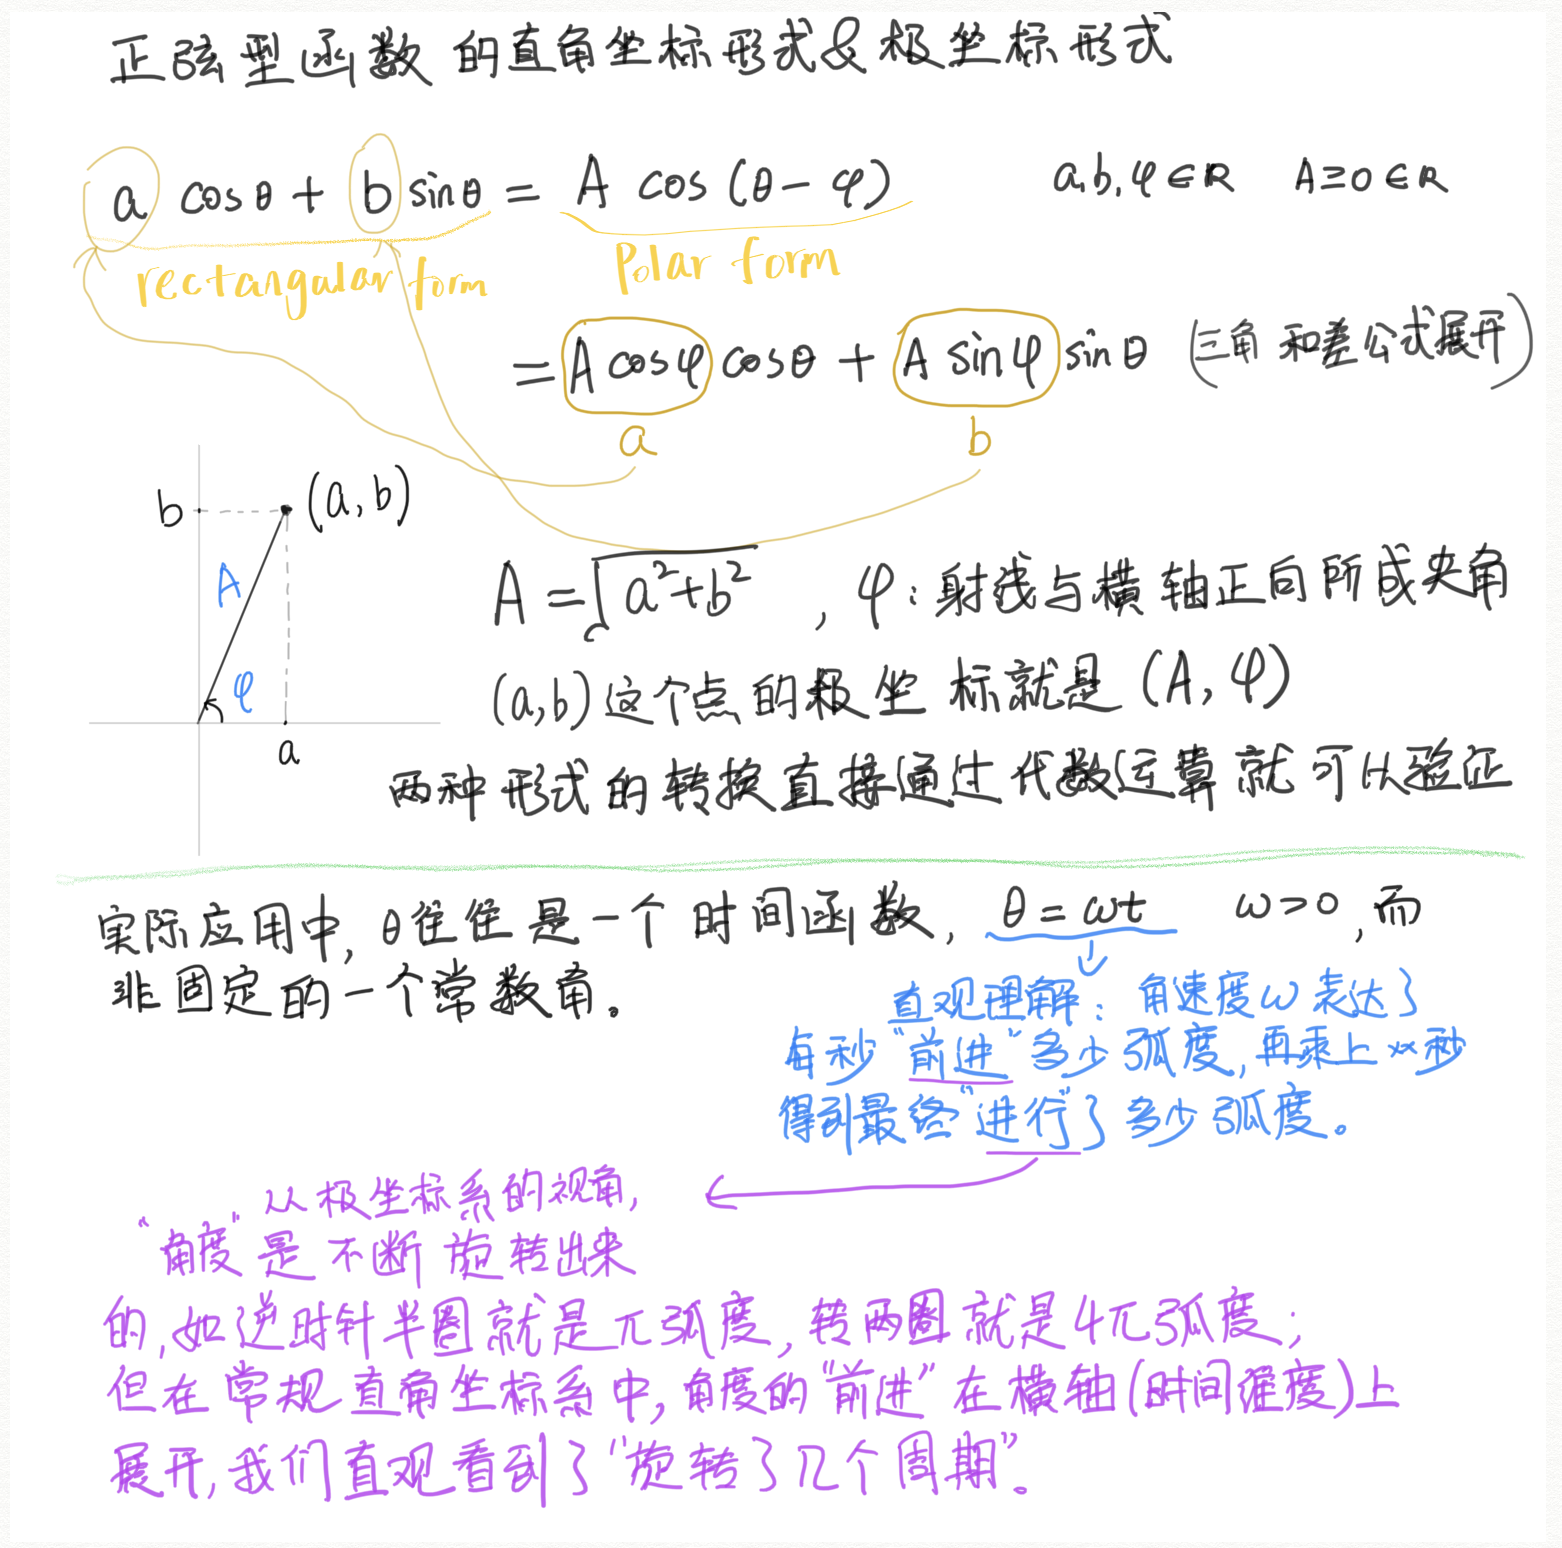 正弦型函数的直角坐标形式&极坐标形式
a cosθ + b sinθ = A cos(θ-φ) a,b,φ∈R A≥0∈R
rectangular form Polar form
= A cosφ cosθ + A sinφ sinθ (三角和差公式展开)
a b
b (a,b)
A
φ
a
A = √(a²+b²) , φ:射线与横轴正向所成夹角
(a,b)这个点的极坐标就是(A,φ)
两种形式的转换直接通过代数运算就可以验证
实际应用中,θ往往是一个时间函数, θ=ωt ω>0,而
非固定的一个常数角。
直观理解:角速度ω表达了
每秒"前进"多少弧度,再乘上××秒
得到最终"进行"了多少弧度。
从极坐标系的视角,
"角度"是不断旋转出来
的,如逆时针半圈就是π弧度,转两圈就是4π弧度;
但在常规直角坐标系中,角度的"前进"在横轴(时间维度)上
展开,我们直观看到了"旋转了几个周期"。